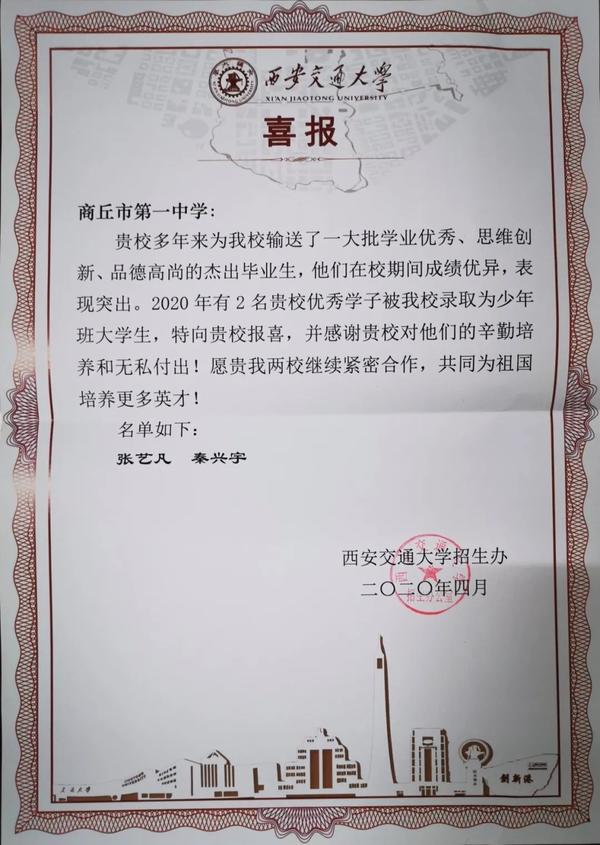 西安交通大学
XI'AN JIAOTONG UNIVERSITY
喜报
商丘市第一中学：
贵校多年来为我校输送了一大批学业优秀、思维创
新、品德高尚的杰出毕业生，他们在校期间成绩优异，表
现突出。2020年有2名贵校优秀学子被我校录取为少年
班大学生，特向贵校报喜，并感谢贵校对他们的辛勤培
养和无私付出！愿贵我两校继续紧密合作，共同为祖国
培养更多英才！
名单如下：
张艺凡 秦兴宇
西安交通大学招生办
二〇二〇年四月
招生办公室
交通大学
创新港